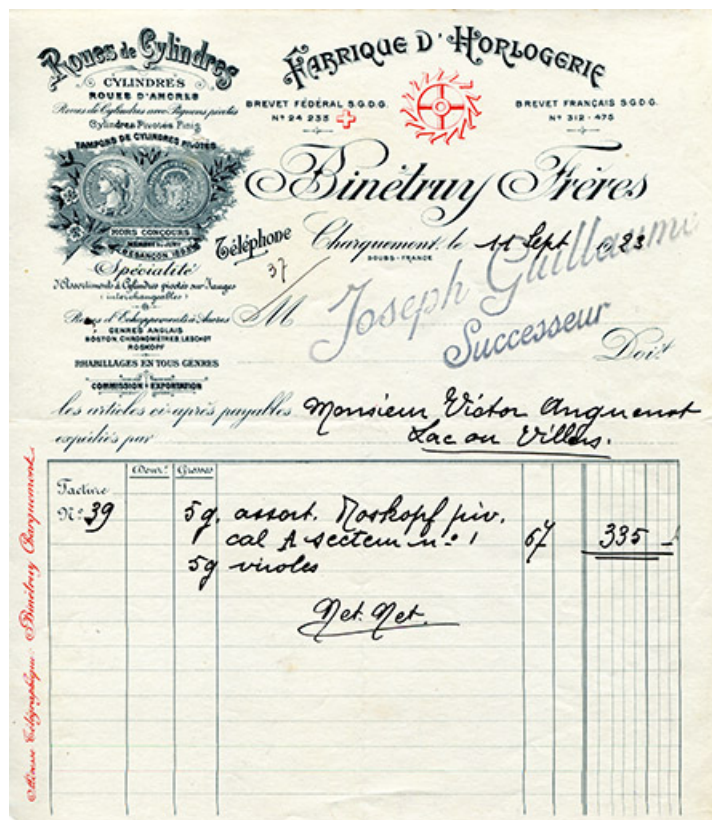 Roues de Cylindres
CYLINDRES
ROUES D'ANCRES
Roues de Cylindres avec Pignons pivotés
Cylindres Pivotés Finis
TAMPONS DE CYLINDRES PIVOTÉS
HORS CONCOURS
MEMBRE DU JURY
BESANÇON
Spécialité
d'Assortiments à Cylindres pivotés sur Jauges
(interchangeables)
Roues d'Echappements à Ancres
GENRES ANGLAIS
BOSTON, CHRONOMÈTRES, LESCHOT
ROSKOPF
RHABILLAGES EN TOUS GENRES
COMMISSION - EXPORTATION
FABRIQUE D'HORLOGERIE
BREVET FÉDÉRAL S.G.D.G.
N° 24 235
BREVET FRANÇAIS S.G.D.G.
N° 312-475
Binétruy Frères
Téléphone
37
Charquemont, le 11 Sept 1923
DOUBS-FRANCE
M
Joseph Guillaume
Successeur
Doit
les articles ci-après payables Monsieur Victor Anguenot
expédiés par Lac ou Villers.
Douz. Grosses
Facture
N° 39 5 g. assort. Roskopf piv.
cal A secteur n° 1 67 335
5g viroles
Net. Net.
Adresse Télégraphique: Binétruy Charquemont